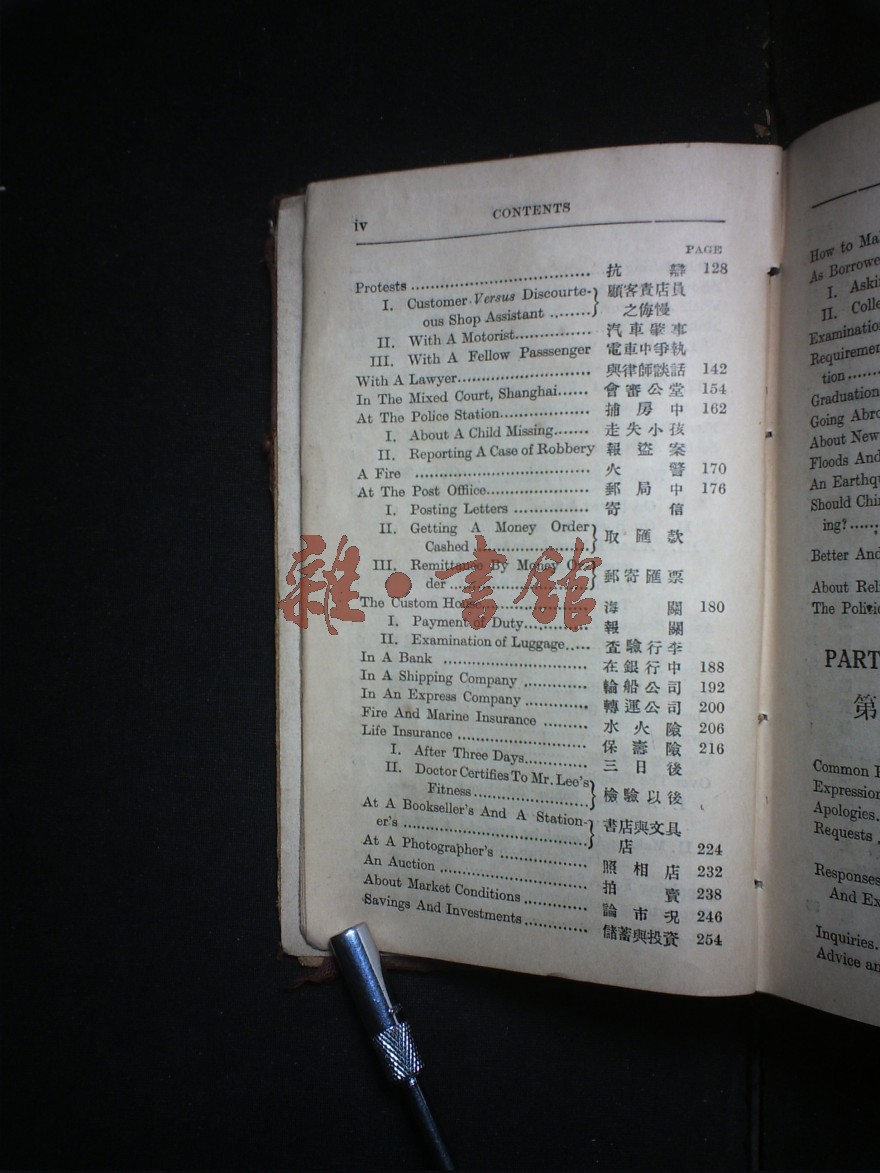 iv CONTENTS
PAGE
Protests ........ 抗 辯 128
I. Customer Versus Discourte- 顧客責店員
ous Shop Assistant ........ 之侮慢
II. With A Motorist........ 汽車肇事
III. With A Fellow Passsenger 電車中爭執
With A Lawyer........ 與律師談話 142
In The Mixed Court, Shanghai...... 會審公堂 154
At The Police Station........ 捕房中 162
I. About A Child Missing....... 走失小孩
II. Reporting A Case of Robbery 報盜案
A Fire ........ 火警 170
At The Post Offiice........ 郵局中 176
I. Posting Letters ........ 寄信
II. Getting A Money Order
Cashed ........ 取匯款
III. Remittence By Money Or-
der ........ 郵寄匯票
The Custom House........ 海關 180
I. Payment of Duty........ 報關
II. Examination of Luggage..... 查驗行李
In A Bank ........ 在銀行中 188
In A Shipping Company ........ 輪船公司 192
In An Express Company ........ 轉運公司 200
Fire And Marine Insurance ........ 水火險 206
Life Insurance ........ 保壽險 216
I. After Three Days........ 三日後
II. Doctor Certifies To Mr. Lee's
Fitness........ 檢驗以後
At A Bookseller's And A Station- 書店與文具
er's ........ 店 224
At A Photographer's ........ 照相店 232
An Auction ........ 拍賣 238
About Market Conditions ........ 論市況 246
Savings And Investments ........ 儲蓄與投資 254
雜·書館
How to
As
I.
II.
tion
Graduation
Going
About New
Floods And
An
Should
ing?
Better And
About
The
PART
第
Common
Apologies.
Requests
Responses
And
Inquiries.
Advice